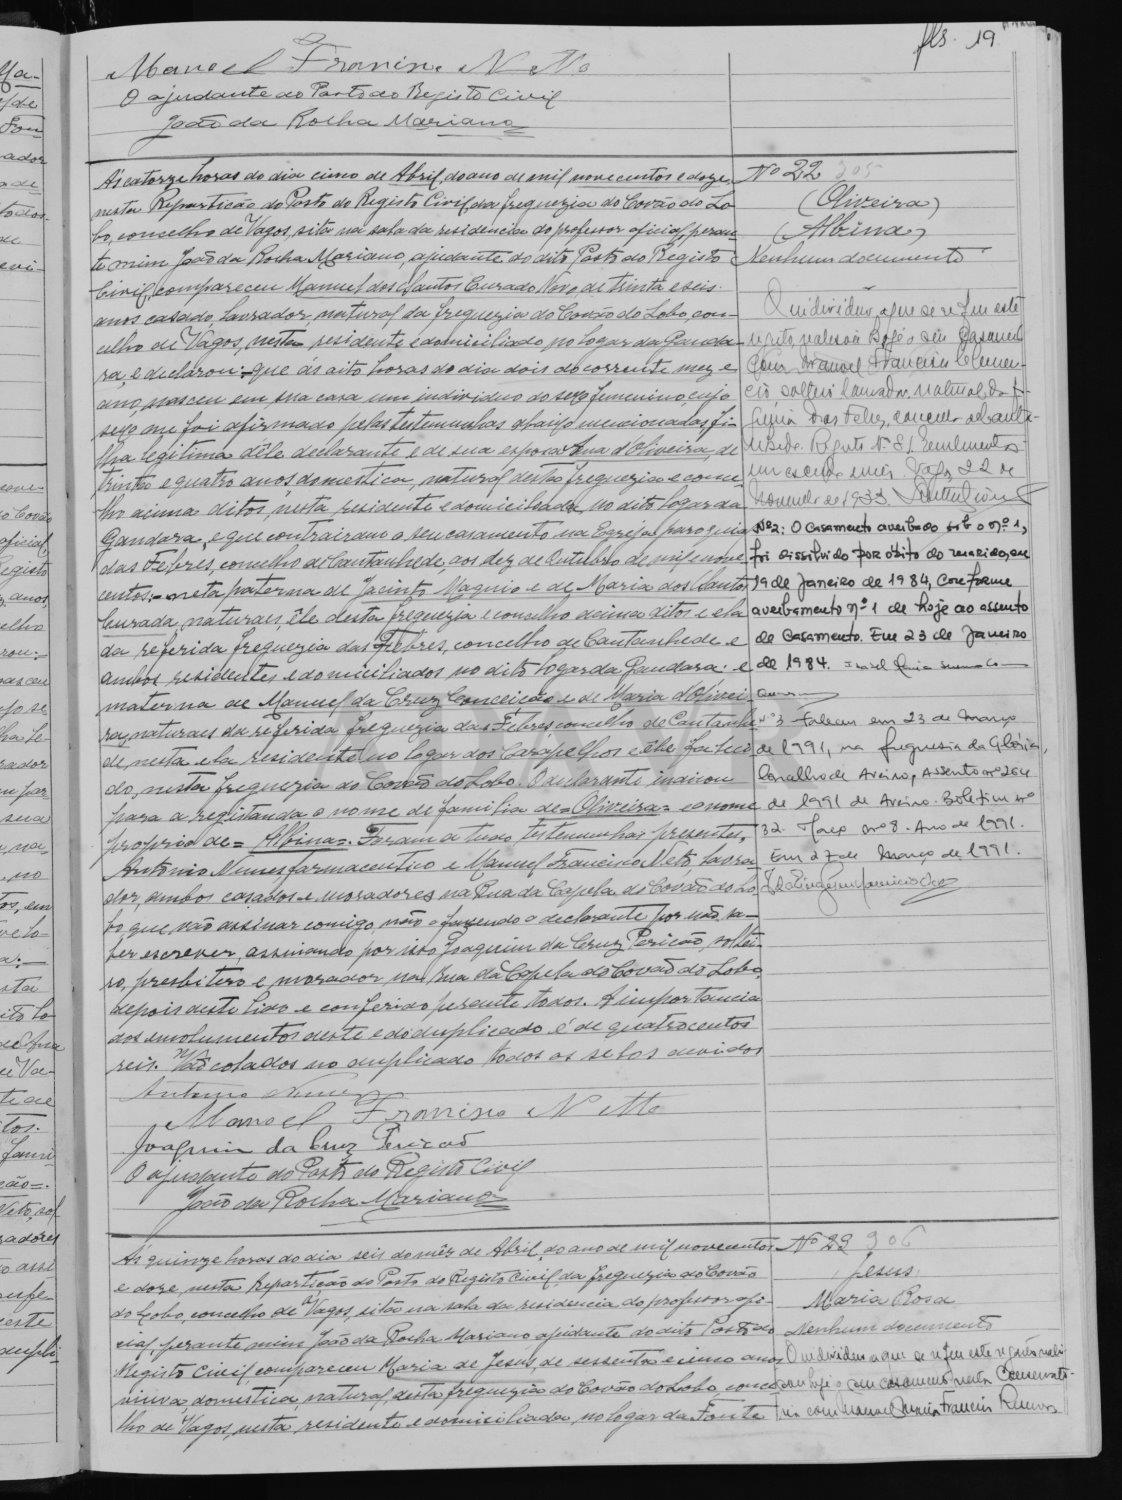 fls. 19
Manoel Francisco Netto
O ajudante do Posto do Registo Civil
João da Rocha Mariano
Nº 22 305
(Oliveira)
(Albina)
Nenhum documento
Ás catorze horas do dia cinco de Abril, do ano de mil novecentos e doze,
nesta Repartição do Posto do Registo Civil, da freguezia do Covão do Lo-
bo, concelho de Vagos, sita na sala da residencia do professor oficial, peran-
te mim João da Rocha Mariano, ajudante do dito Posto do Registo
Civil, compareceu Manuel dos Santos Curado Novo, de trinta e seis
anos, casado, lavrador, natural da freguezia do Covão do Lobo, con-
celho de Vagos, nesta residente e domiciliado no logar da Ganda-
ra, e declarou: que ás oito horas do dia dois do corrente mez e
ano, nasceu em sua casa um individuo do sexo femenino, cujo
sexo me foi afirmado pelas testemunhas abaixo mencionadas, fi-
lha legitima dêle declarante e de sua esposa Ana d'Oliveira, de
trinta e quatro anos, domestica, natural desta freguezia e conce-
lho acima ditos, nesta residente e domiciliada, no dito logar da
Gandara, e que contrairam o seu casamento na Egreja paroquial
das Febres, concelho de Cantanhede, aos dez de Outubro de mil e nove
centos:- neta paterna de Jacinto Magnio e de Maria dos Santos
Curada, naturais, êle desta freguezia e concelho acima ditos e ela
da referida freguezia das Febres, concelho de Cantanhede e
ambos residentes e domiciliados no dito logar da Gandara: e
materna de Manuel da Cruz Conceição e de Maria d'Olivei-
ra, naturais da referida freguezia das Febres, concelho de Cantanhe-
de, nesta ela residente no logar dos Carapelhos e êle faleci-
do, nesta freguezia do Covão do Lobo. O declarante indicou
para a registanda o nome de familia de = Oliveira = e o nome
proprio de = Albina =. Foram a tudo testemunhas presentes,
Antonio Nunes, farmaceutico e Manuel Francisco Neto, lavra-
dor, ambos casados e moradores na Rua da Capela do Covão do Lo-
bo, que vão assinar comigo, não o fazendo o declarante por não sa-
ber escrever, assinando por isso Joaquim da Cruz Pericão, soltei-
ro, presbitero e morador na rua da Capela do Covão do Lobo,
depois deste lido e conferido perante todos. A importancia
dos emolumentos deste e do duplicado é de quatrocentos
reis. Vão colados no duplicado todos os selos devidos
Antonio Nunes
Manoel Francisco Netto
Joaquim da Cruz Pericão
O ajudante do Posto do Registo Civil
João da Rocha Mariano
O individuo a que se refere este
registo, realisou hoje o seu casamento
com Manoel Francisco Clemen-
cio, solteiro lavrador natural da fre-
guesia das Febres, concelho de Canta-
nhede. Registo Nº 81. Emolumentos
um escudo e meio. Vagos, 22 de
Novembro de 1933
Nº 2: O casamento averbado sob o nº 1,
foi dissolvido por óbito do marido, em
19 de Janeiro de 1984, conforme
averbamento nº 1 de hoje ao assento
de casamento. Em 23 de Janeiro
de 1984.
Nº 3 Faleceu em 23 de Março
de 1991, na freguesia da Glória,
Concelho de Aveiro, Assento nº 264
de 1991 de Aveiro. Boletim nº
32. Março nº 8. Ano de 1991.
Em 27 de Março de 1991.
Nº 23 306
Jesus
Maria Rosa
Nenhum documento
Ás quinze horas do dia seis do mês de Abril, do ano de mil novecentos
e doze, nesta Repartição do Posto do Registo Civil, da freguezia do Covão
do Lobo, concelho de Vagos, sita na sala da residencia do professor ofi-
cial, perante mim João da Rocha Mariano, ajudante do dito Posto do
Registo Civil, compareceu Maria de Jesus, de sessenta e cinco anos,
viuva, domestica, natural desta freguezia do Covão do Lobo, conce-
lho de Vagos, nesta residente e domiciliada, no logar da Fonte
O individuo a que se refere este registo reali-
sou hoje o seu casamento nesta Conservató-
ria com